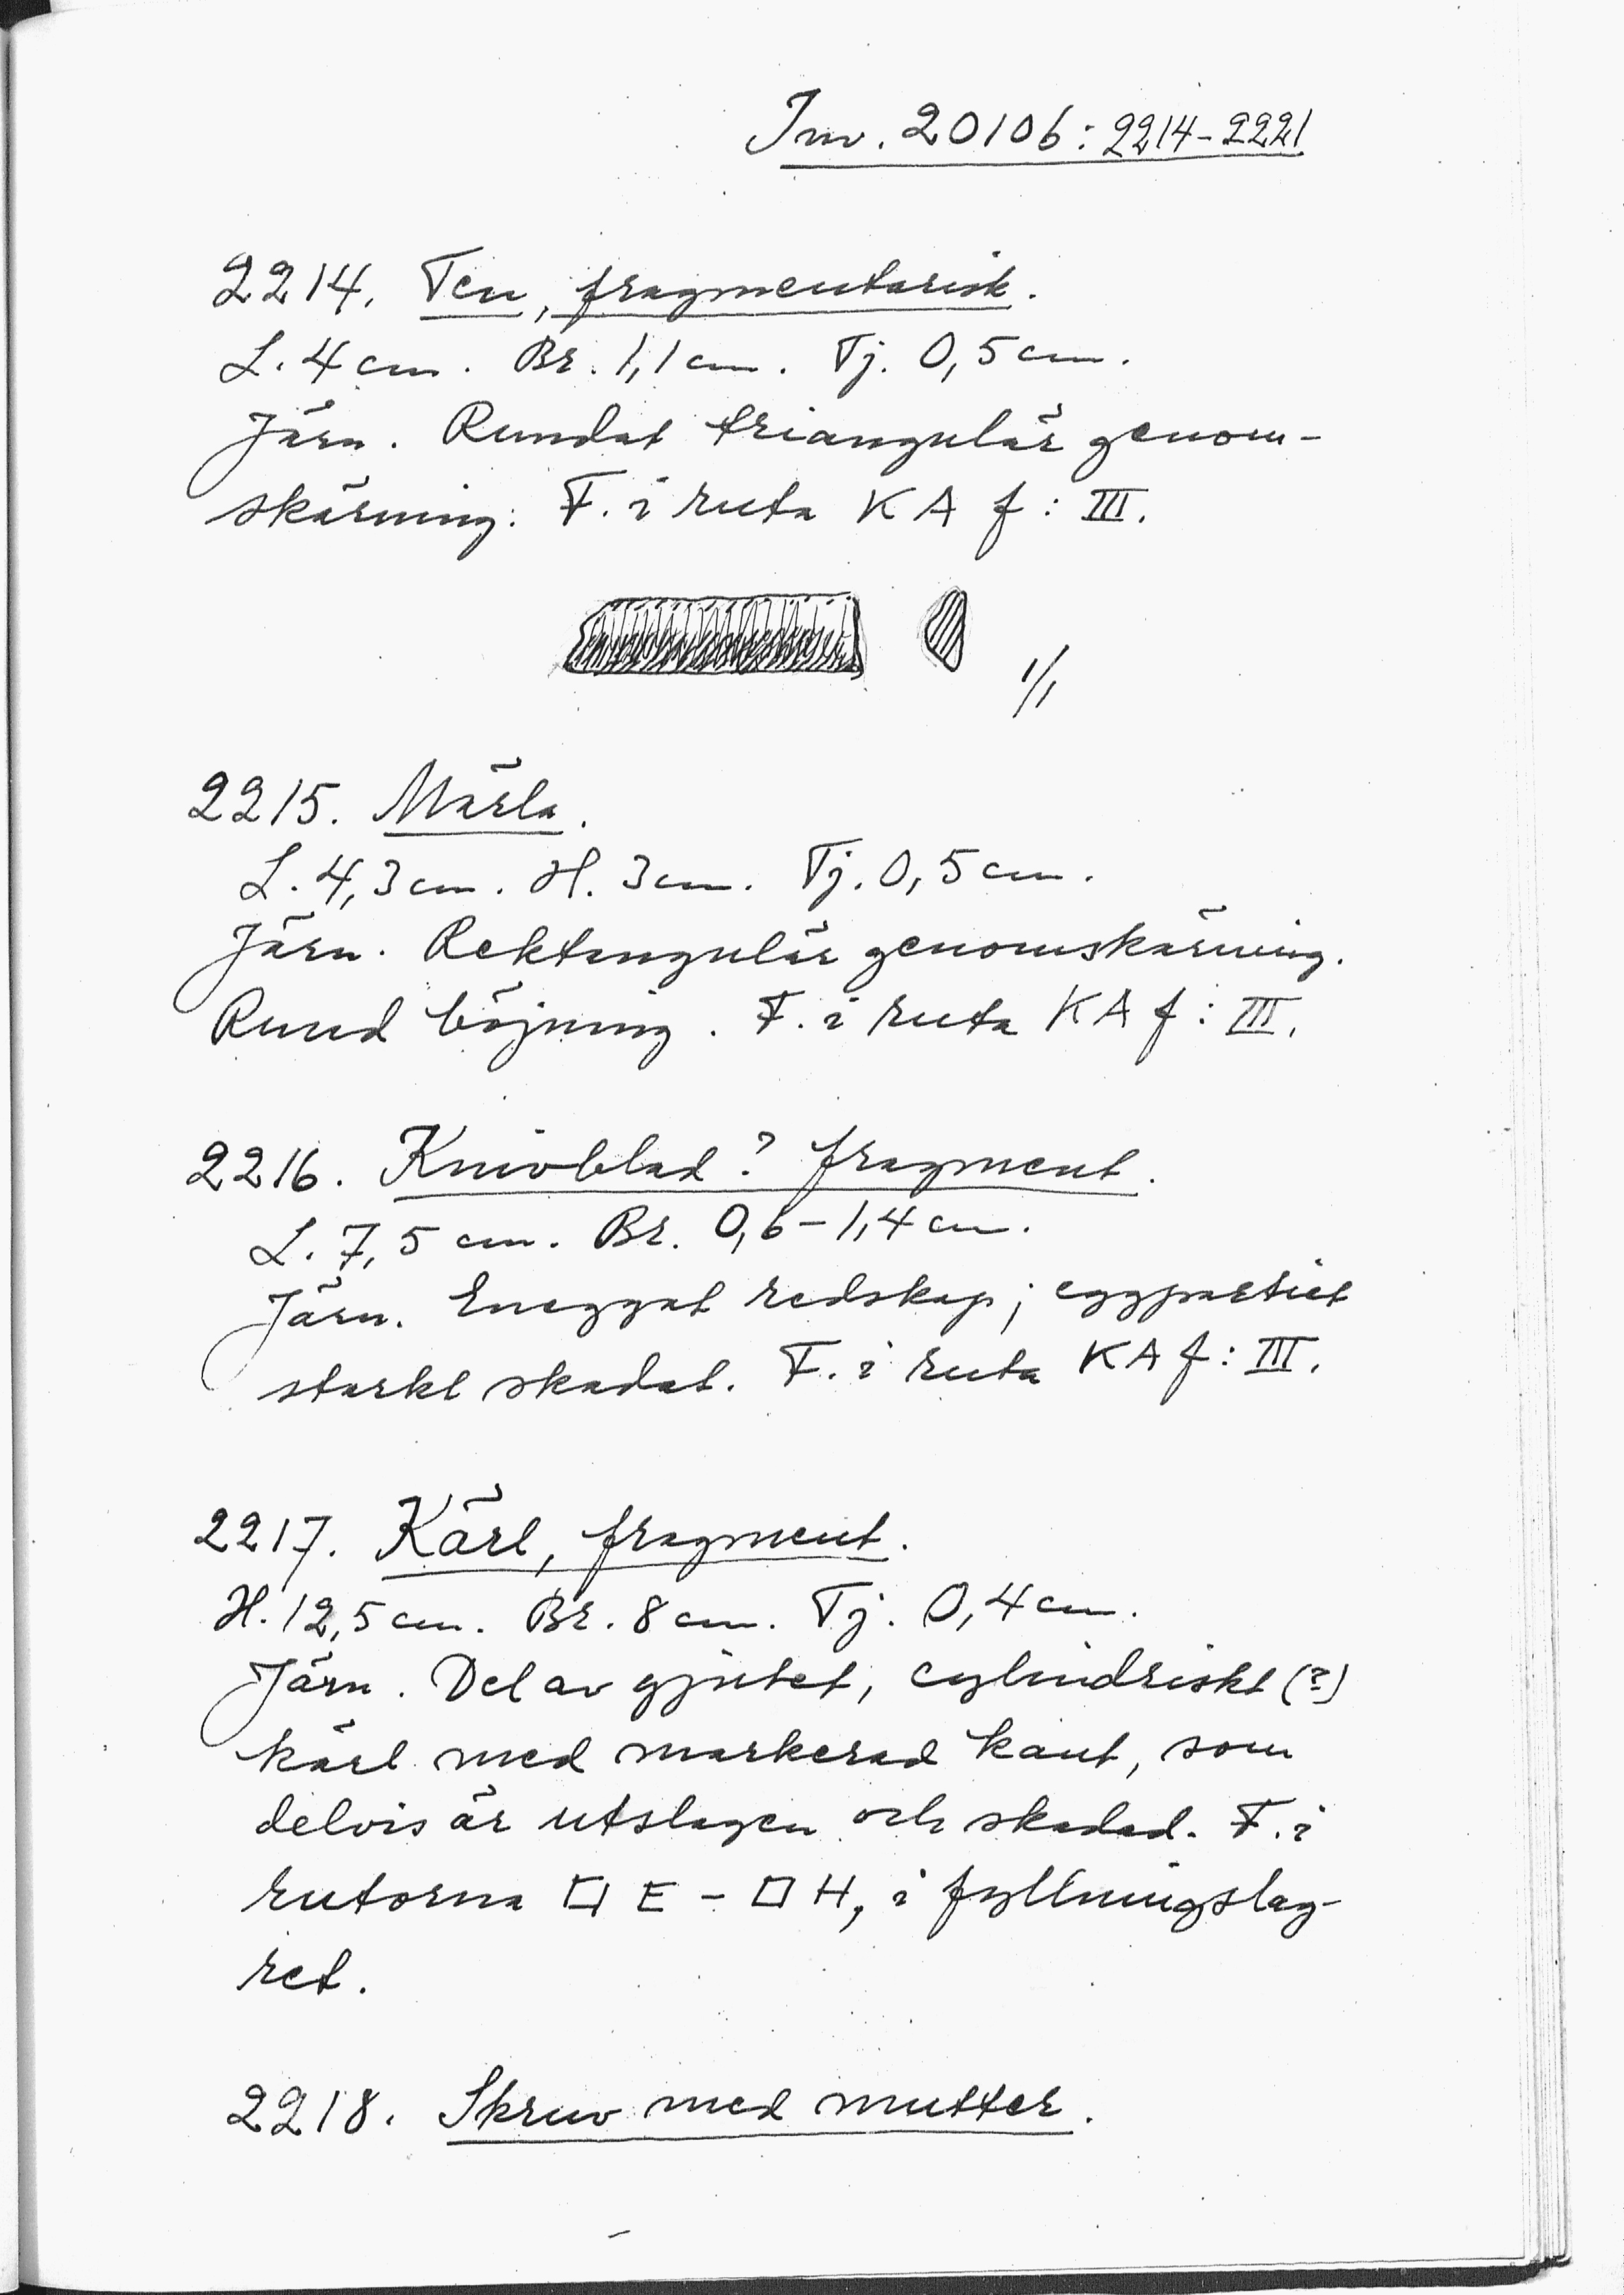 Inv. 20106: 2214-2221
2214. Ten, fragmentarisk.
L. 4 cm. Br. 1,1 cm. Tj. 0,5 cm.
Järn. Rundat triangulär genom-
skärning. F. i ruta KA f: III.
1/1
2215. Märla.
L. 4,3 cm. H. 3 cm. Tj. 0,5 cm.
Järn. Rektangulär genomskärning.
Rund böjning. F. i ruta KA f: III.
2216. Knivblad? fragment.
L. 7,5 cm. Br. 0,6-1,4 cm.
Järn. Eneggat redskap; eggpartiet
starkt skadat. F. i ruta KA f: III.
2217. Kärl, fragment.
H. 12,5 cm. Br. 8 cm. Tj. 0,4 cm.
Järn. Del av gjutet, cylindriskt (?)
kärl med markerad kant, som
delvis är utslagen och skadad. F. i
rutorna □ E - □ H, i fyllningslag-
ret.
2218. Skruv med mutter.